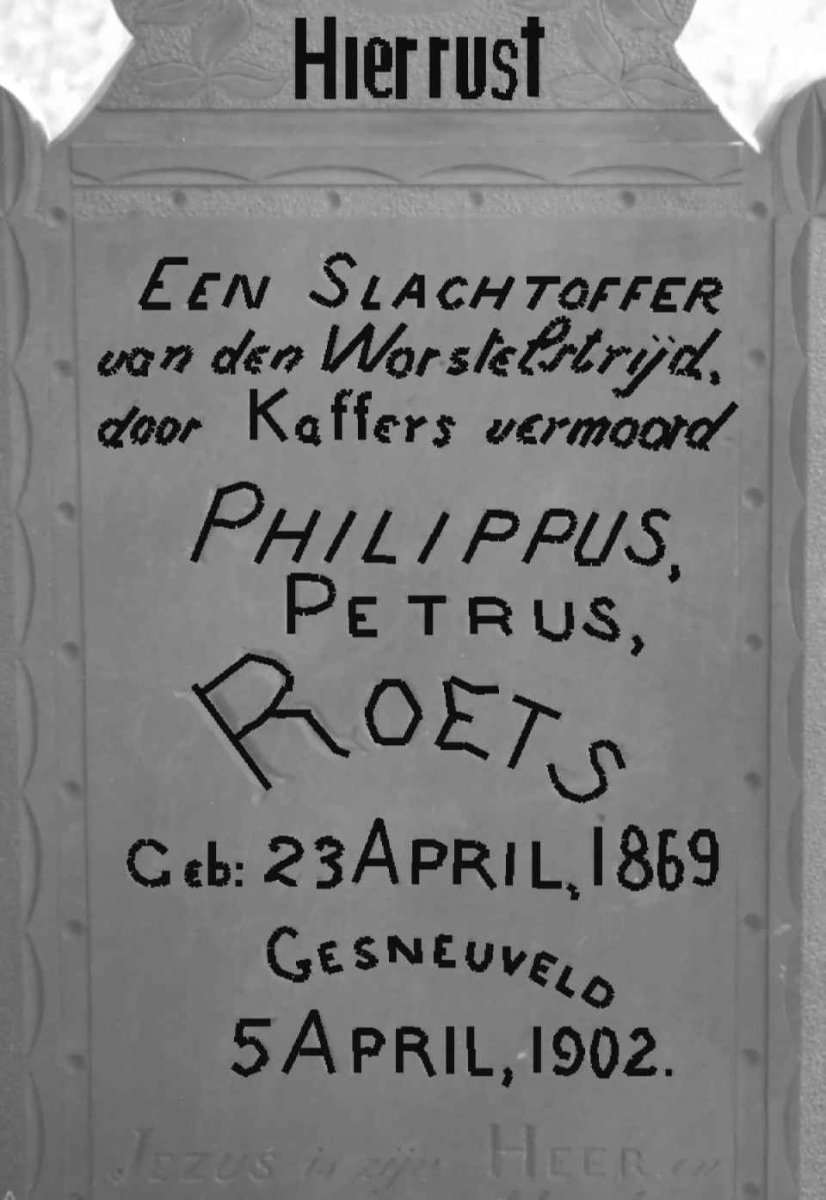 Hier rust
EEN SLACHTOFFER
van den Worstelstrijd,
door Kaffers vermoord
PHILIPPUS,
PETRUS,
ROETS
Geb: 23 APRIL, 1869
GESNEUVELD
5 APRIL, 1902.
JEZUS is zijn HEER en